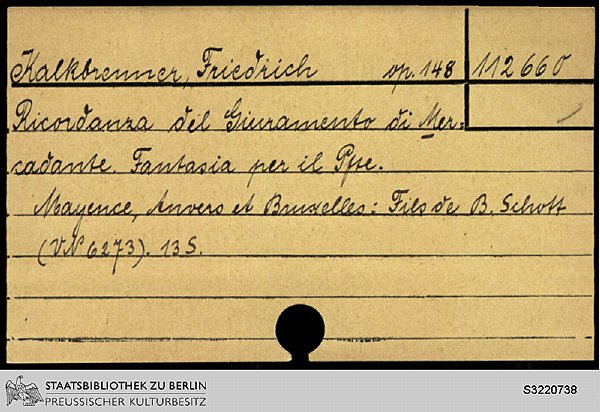 Kalkbrenner, Friedrich op. 148 112 660
Ricordanza del Giuramento di Mer-
cadante. Fantasia per il Pfte.
Mayence, Anvers et Bruxelles: Fils de B. Schott
(VN 6273). 13 S.
STAATSBIBLIOTHEK ZU BERLIN
PREUSSISCHER KULTURBESITZ
S3220738